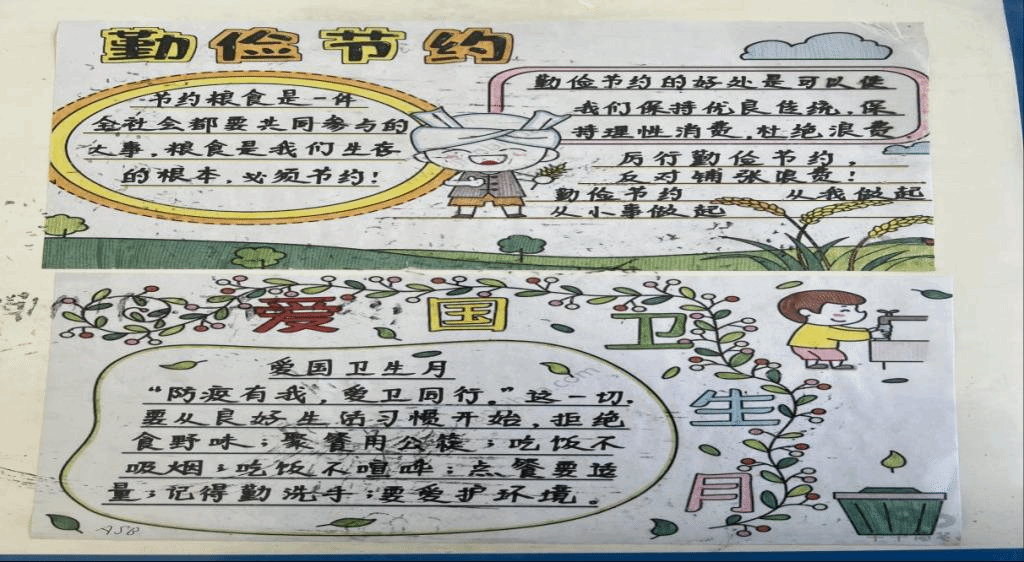 勤俭节约
节约粮食是一件
全社会都要共同参与的
大事，粮食是我们生存
的根本，必须节约！
勤俭节约的好处是可以使
我们保持优良传统，保
持理性消费，杜绝浪费
厉行勤俭节约，
反对铺张浪费！
勤俭节约 从我做起
从小事做起
爱国卫生月
爱国卫生月
“防疫有我，爱卫同行。”这一切，
要从良好生活习惯开始，拒绝
食野味；聚餐用公筷；吃饭不
吸烟；吃饭不喧哗；点餐要适
量；记得勤洗手；要爱护环境。
.com